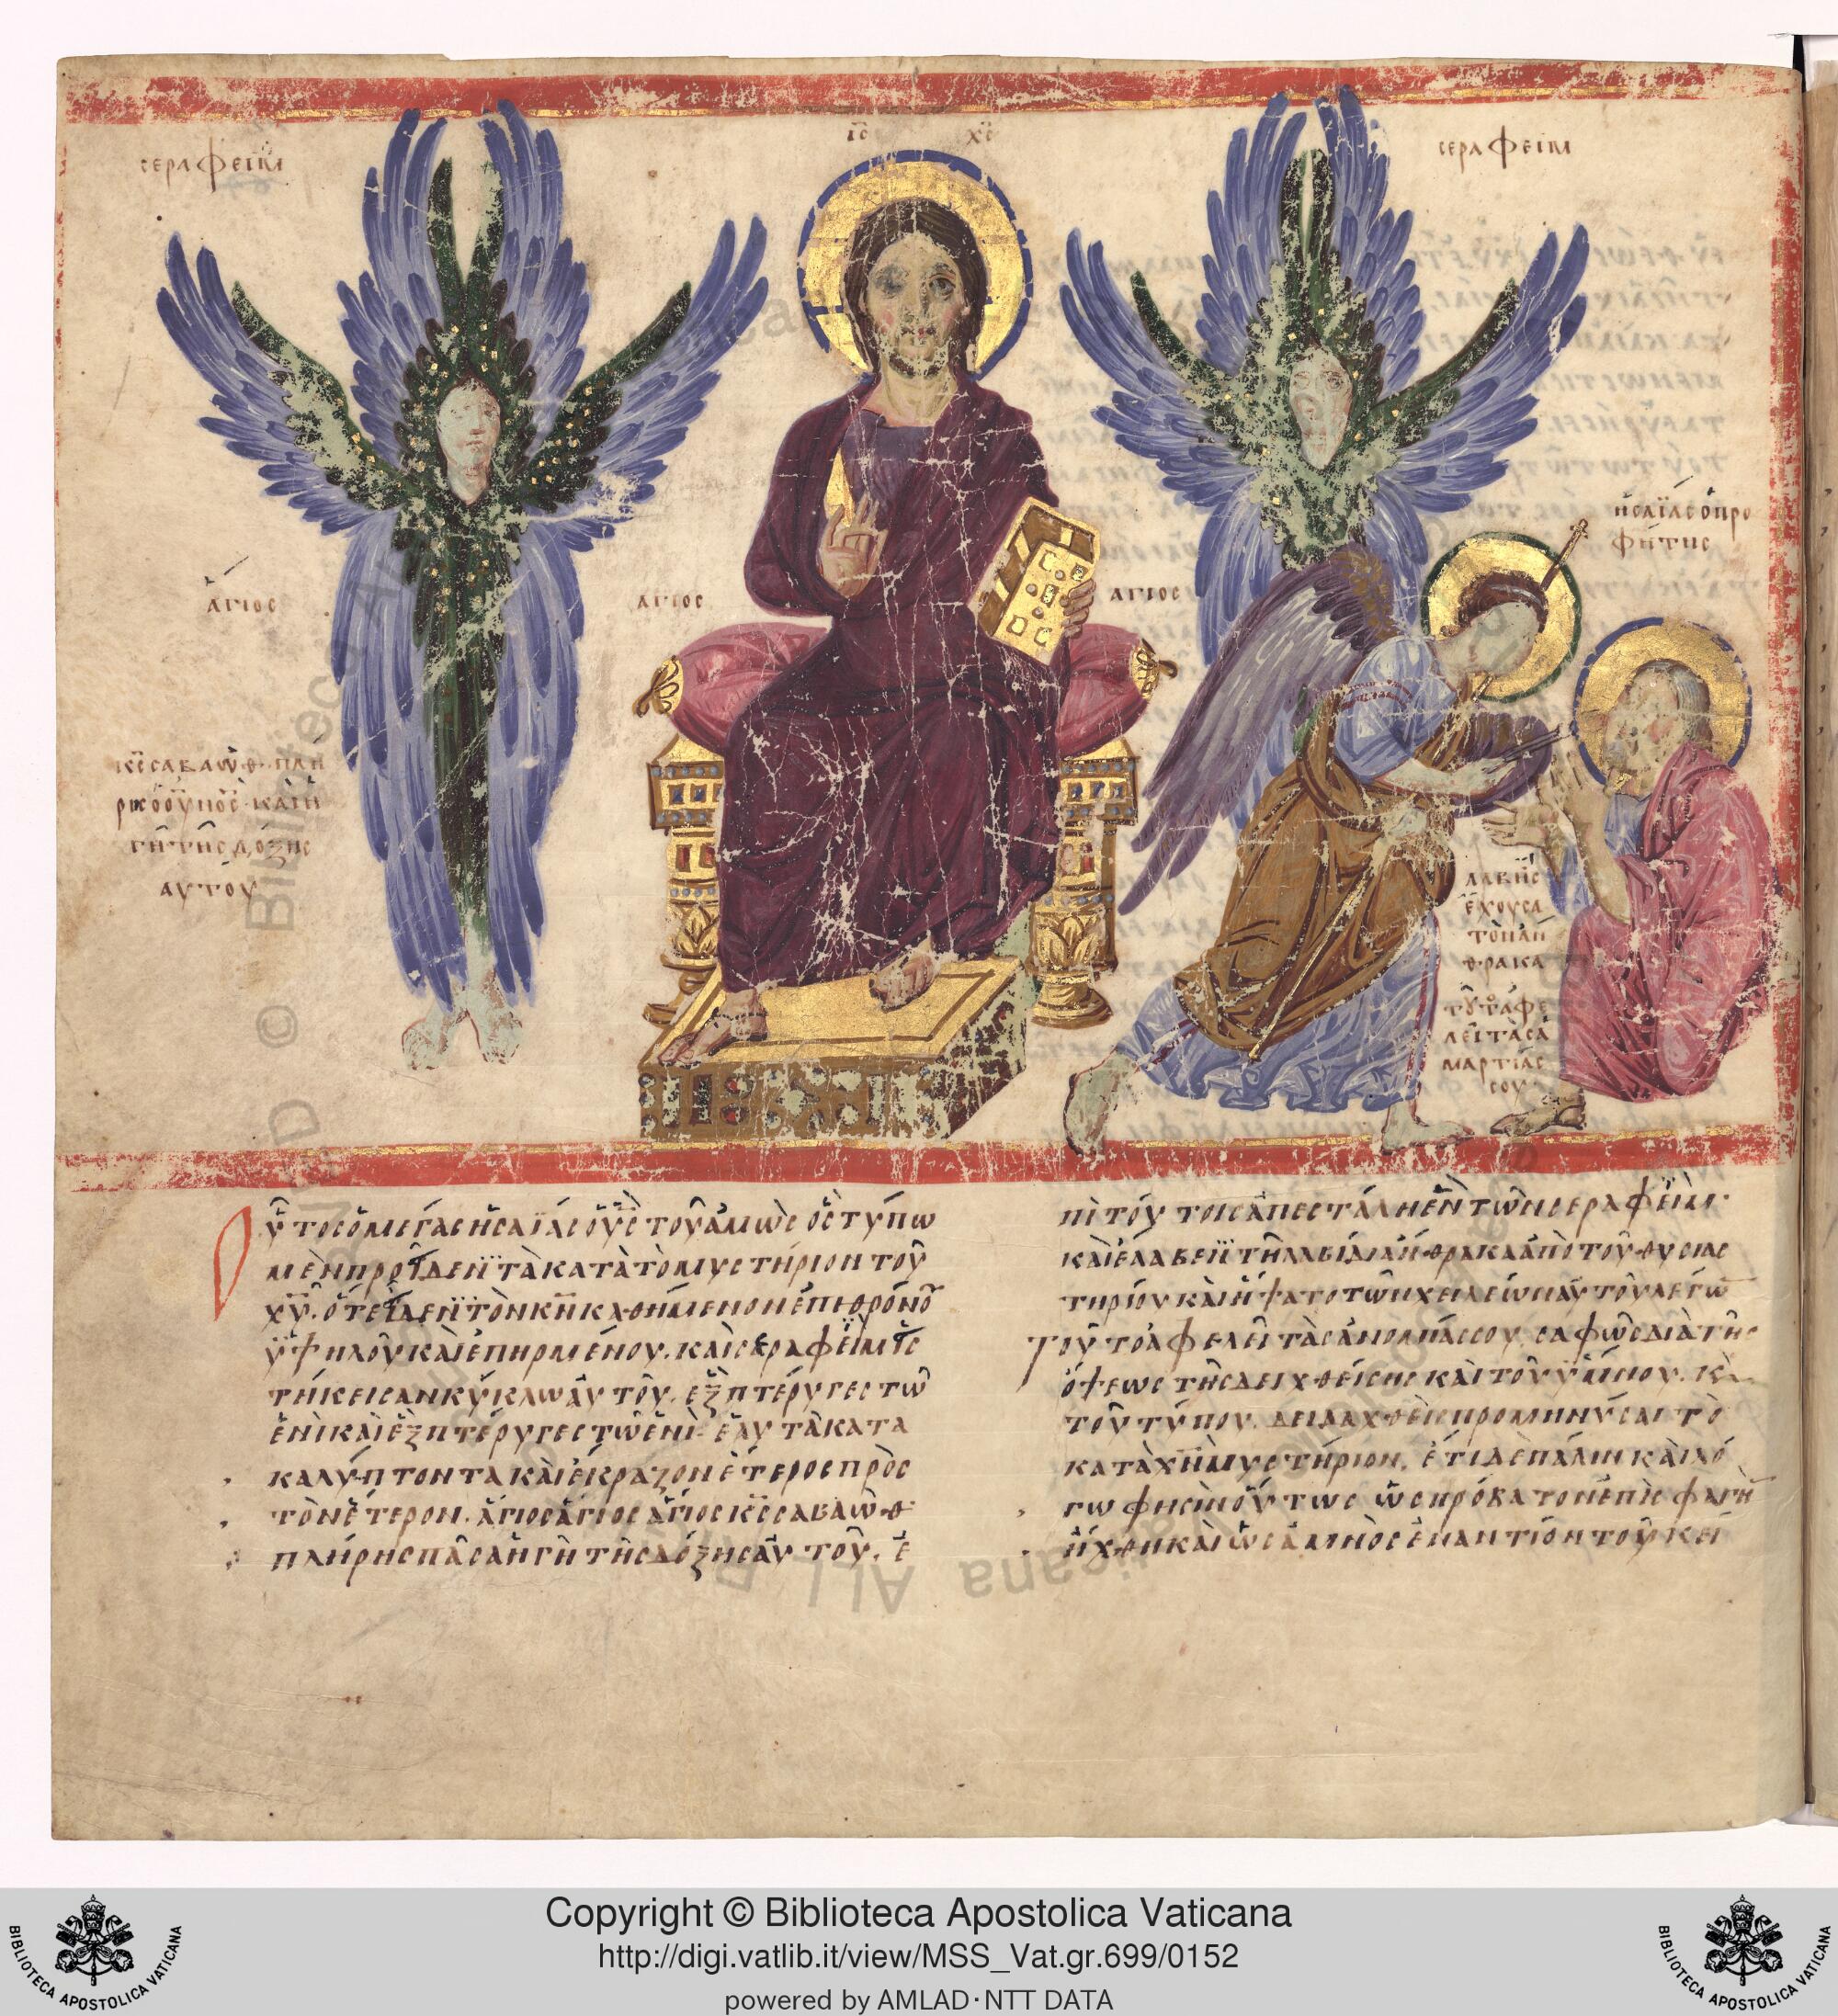 ΙC ΧC
CΕΡΑΦΕΙΜ
CΕΡΑΦΕΙΜ
ἩCΑΪΑC Ὁ ΠΡΟ
ΦΗΤΗC
ἍΓΙΟC
ἍΓΙΟC
ἍΓΙΟC
ΚC CΑΒΑῺΘ ΠΛΗ
ΡΗC Ὁ ΟΥΝΟC ΚΑΙ Ἡ
ΓΗ ΤΗC ΔΟΞΗC
ΑΥΤΟΥ
ΛΑΒΗC
ἜΧΟΥCΑ
ΤΟΝ ΑΝ
ΘΡΑΚΑ
ΤΟΥΤΟ ἈΦΕ
ΛΕΙ ΤΑC Ἁ
ΜΑΡΤΙΑC
CΟΥ
Οὗτοc ὁ μέγαc ἡcαΐαc ὁ ὑc τοῦ ἀμὼc ὃc τύπω
μὲν προΐδεν τὰ κατὰ τὸ μυcτήριον τοῦ
χυ. ὅτε ἴδεν τὸν κν καθήμενον ἐπι θρόνου
ὑψηλοῦ καὶ ἐπηρμένου. καὶ cεραφεὶμ
τήκειcαν κύκλω αὐτοῦ. ἓξ πτέρυγεc τῶ
ἑνὶ καὶ ἓξ πτέρυγεc τῶ ἑνὶ ἑαυτὰ κατα
καλύπτοντα καὶ ἔκραζον ἕτεροc πρὸc
τὸν ἕτερον. ἅγιοc ἅγιοc ἅγιοc κc cαβαὼθ
πλήρηc πᾶcα ἡ γῆ τῆc δόξηc αὐτοῦ. ἐ
πὶ τούτοιc ἀπεcτάλη ἓν τῶν cεραφεὶμ.
καὶ ἔλαβεν τῆ λαβίδι ἄνθρακα ἀπὸ τοῦ θυcιαc
τηρίου καὶ ἥψατο τῶν χειλέων αὐτοῦ λέγω
τοῦτο ἀφελεῖ τὰc ἀνομίαc cου. cαφῶc διὰ τῆc
ὄψεωc τῆc δειχθείcηc καὶ τοῦ ὕμνου. κα
τοῦ τύπου. διδαχθεὶc προμηνῦcαι τὸ
κατὰ χν μυcτήριον. ἔτι δὲ πάλιν καὶ λό
γω φηcὶν οὕτωc ὡc πρόβατον ἐπὶ cφαγὴν
ἤχθη καὶ ὡc ἀμνὸc ἐναντίον τοῦ κεί
Copyright © Biblioteca Apostolica Vaticana
http://digi.vatlib.it/view/MSS_Vat.gr.699/0152
powered by AMLAD·NTT DATA
BIBLIOTECA APOSTOLICA VATICANA
BIBLIOTECA APOSTOLICA VATICANA